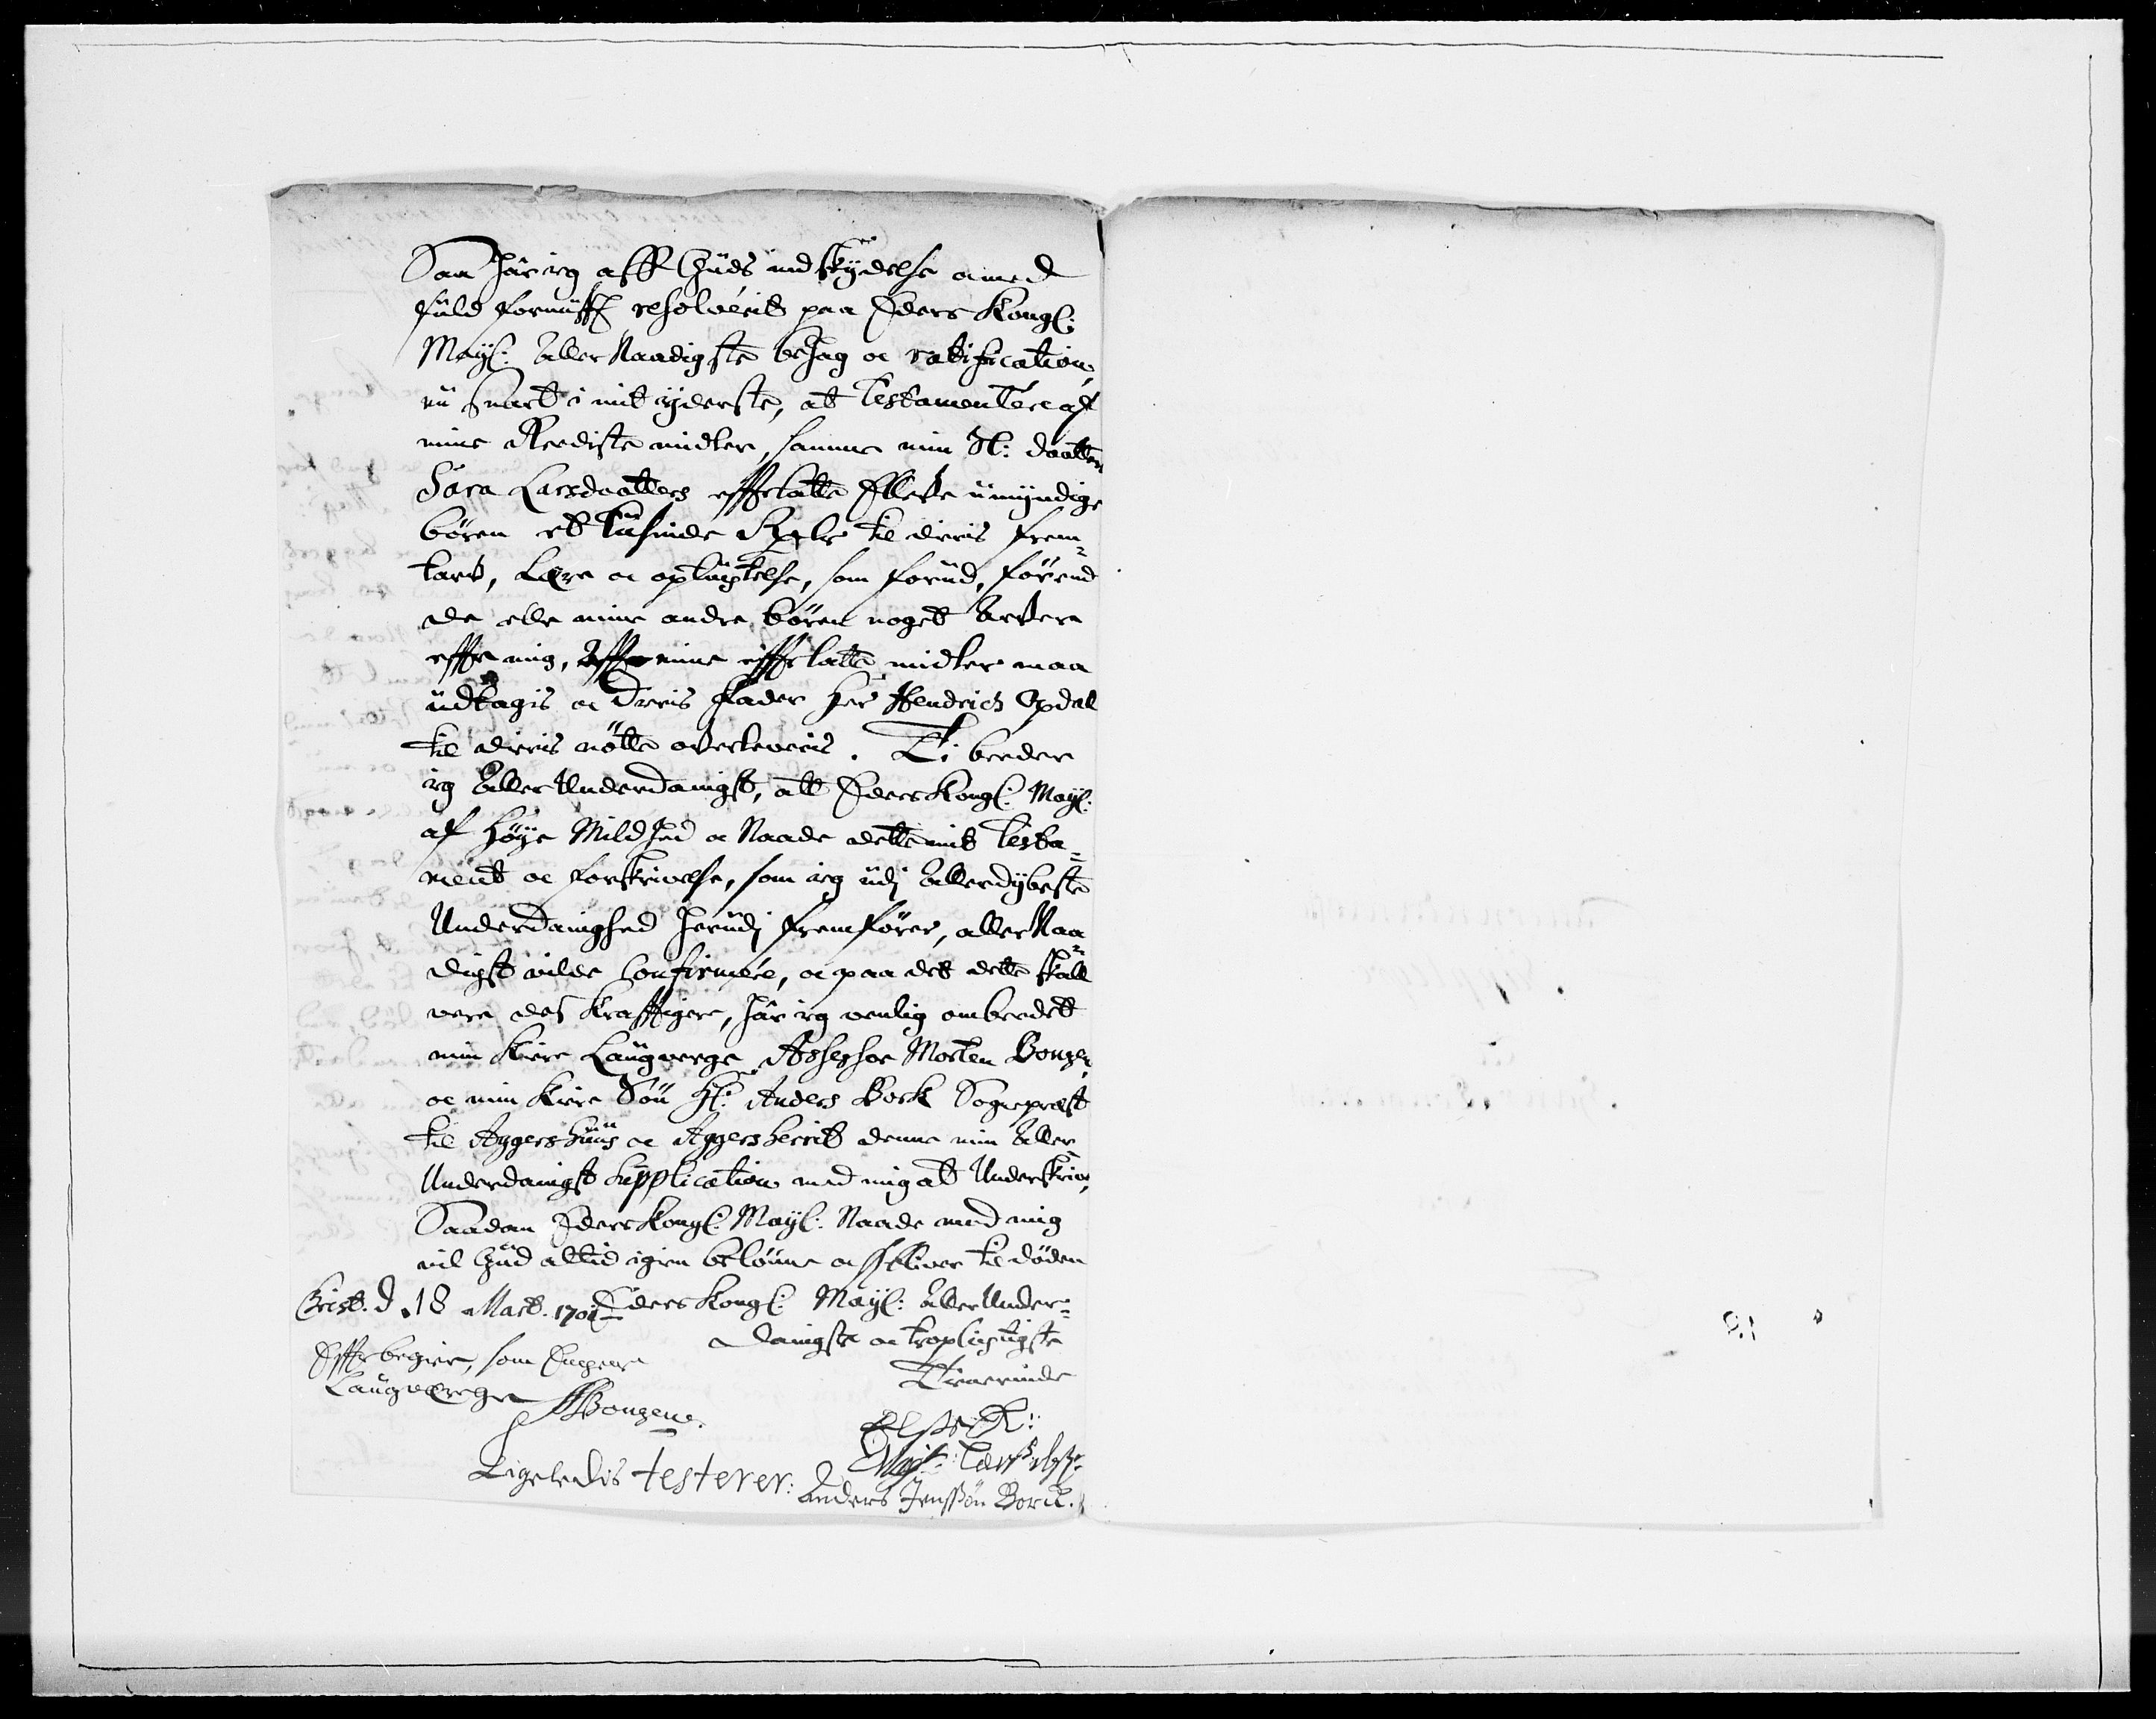 Saa har ieg aff Guds indskydelse a med
fuld fornufft resolverit paa Eders Kongl:
Mayt: Aller Naadigste behag oc ratification,
nu snart i mit yderste, at testamentere af
mine Reediste midler, samme min Sl: daatter
Sara Larsdaatters effterlatte Elleve umyndige
börn et tusinde Rixdlr til deris frem-
tarv, Lære oc optugtelse, som forud, förend
de eller mine andre börn noget Arver
effter mig, Aff mine effterlatte midler maa
udtagis oc deris fader Her Hendrich Opdal
til deris nötte overleveris. Ti beeder
ieg Aller Underdanigst, att Eders Kongl: Mayt:
af Höye Mildhed oc Naade dette mit Testa-
ment oc forskrivelse, som ieg udj Allerdybeste
Underdanighed herudj fremförer, aller Naa-
digst vilde Confirmere, oc paa det dette skall
vere des krafftigere, har ieg venlig ombeedet
min kiere Laugverge Assessor Morten Bonge,
oc min kiere Sön Hr: Anders Bork Sognepræst
til Aggershuus oc Aggersherrit denne min Aller
Underdanigst Supplication med mig at Underskrive,
Saadan Eders Kongl: Mayt: Naade med mig
vil Gud altid igien belönne oc ieg bliver til döden
Crist. d. 18 Mart. 1701 Eders Kongl: Mayt: Aller Under-
danigste oc tropligtigste
Effter begier, som
Tienerinde
Laugværge
Bongene.
Ligeledis testerer: Anders Jenssön Borck.